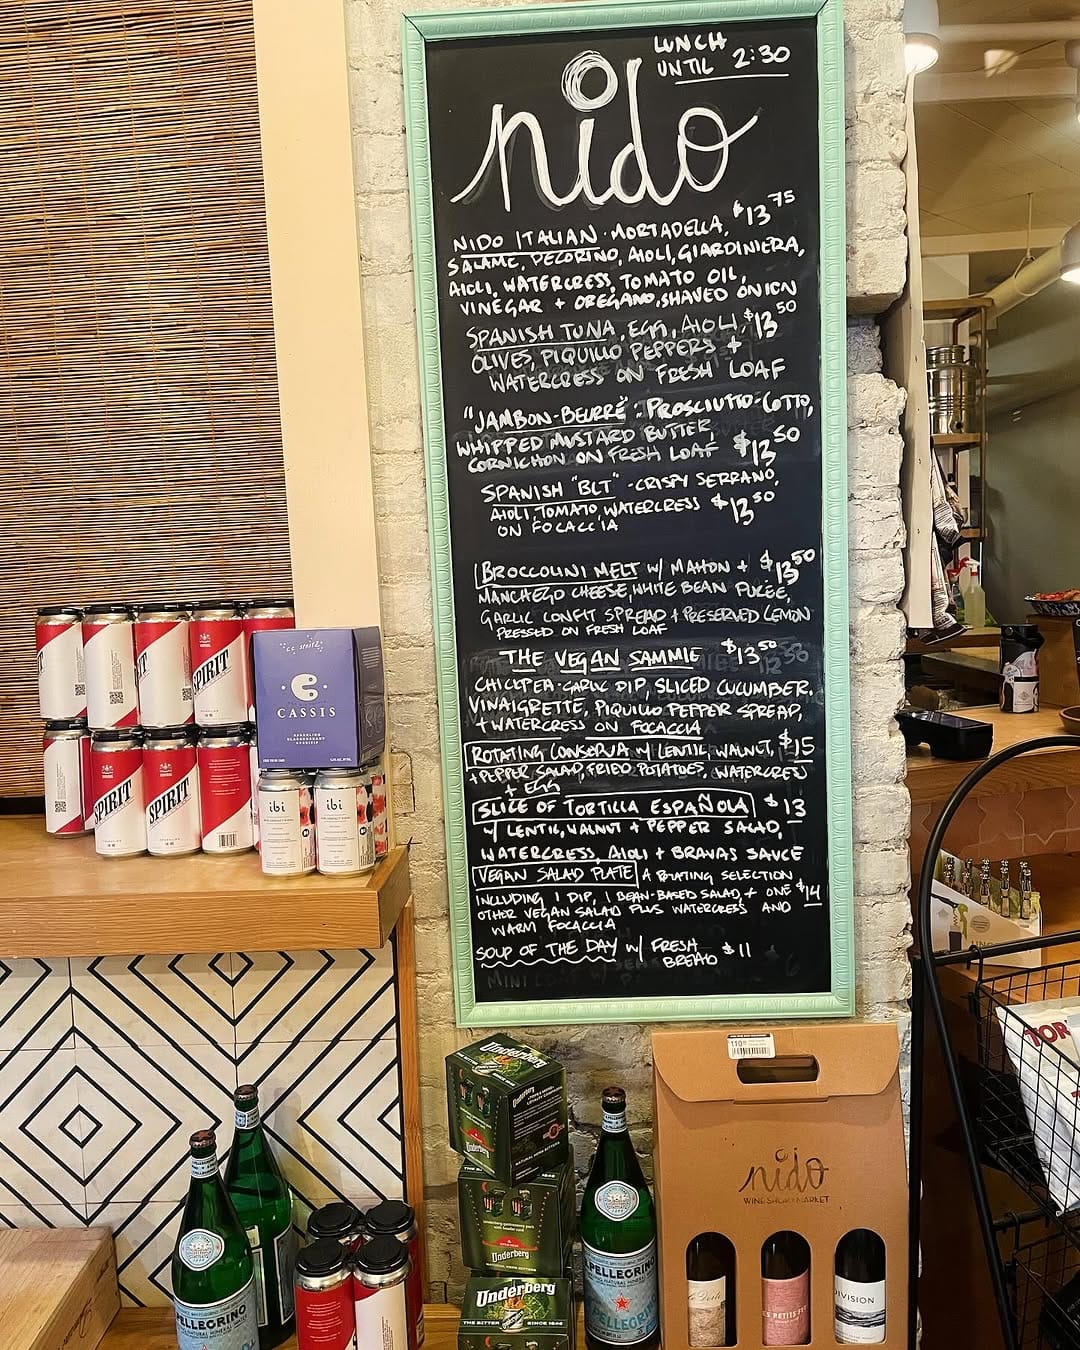 LUNCH
UNTIL 2:30
nido
NIDO ITALIAN - MORTADELLA, $13 75
SALAME, PECORINO, AIOLI, GIARDINIERA,
AIOLI, WATERCRESS, TOMATO OIL,
VINEGAR + OREGANO, SHAVED ONION
SPANISH TUNA, EGG, AIOLI, $13 50
OLIVES, PIQUILLO PEPPERS +
WATERCRESS ON FRESH LOAF
"JAMBON-BEURRE" - PROSCIUTTO-COTTO,
WHIPPED MUSTARD BUTTER
CORNICHON ON FRESH LOAF $13 50
SPANISH "BLT" - CRISPY SERRANO,
AIOLI, TOMATO, WATERCRESS $13 50
ON FOCACCIA
BROCCOLINI MELT W/ MAHON + $13 50
MANCHEGO CHEESE, WHITE BEAN PUREE,
GARLIC CONFIT SPREAD + PRESERVED LEMON
PRESSED ON FRESH LOAF
THE VEGAN SAMMIE $13 50
CHICKPEA-GARLIC DIP, SLICED CUCUMBER,
VINAIGRETTE, PIQUILLO PEPPER SPREAD,
+ WATERCRESS ON FOCACCIA
ROTATING CONSERVA W/ LENTIL WALNUT, $15
+ PEPPER SALAD, FRIED POTATOES, WATERCRESS
+ EGG
SLICE OF TORTILLA ESPAÑOLA $13
W/ LENTIL, WALNUT + PEPPER SALAD,
WATERCRESS, AIOLI + BRAVAS SAUCE
VEGAN SALAD PLATE A ROTATING SELECTION
INCLUDING 1 DIP, 1 BEAN-BASED SALAD, + ONE $14
OTHER VEGAN SALAD PLUS WATERCRESS AND
WARM FOCACCIA
SOUP OF THE DAY W/ FRESH BREAD $11
SPIRIT
SPIRIT
SPIRIT
SPIRIT
C.C. SPRITZ
CASSIS
ibi
ibi
Underberg
Underberg
Underberg
THE BITTER SINCE 1846
S.PELLEGRINO
S.PELLEGRINO
nido
WINE SHOP/MARKET
LES PETITS
DIVISION
TOR